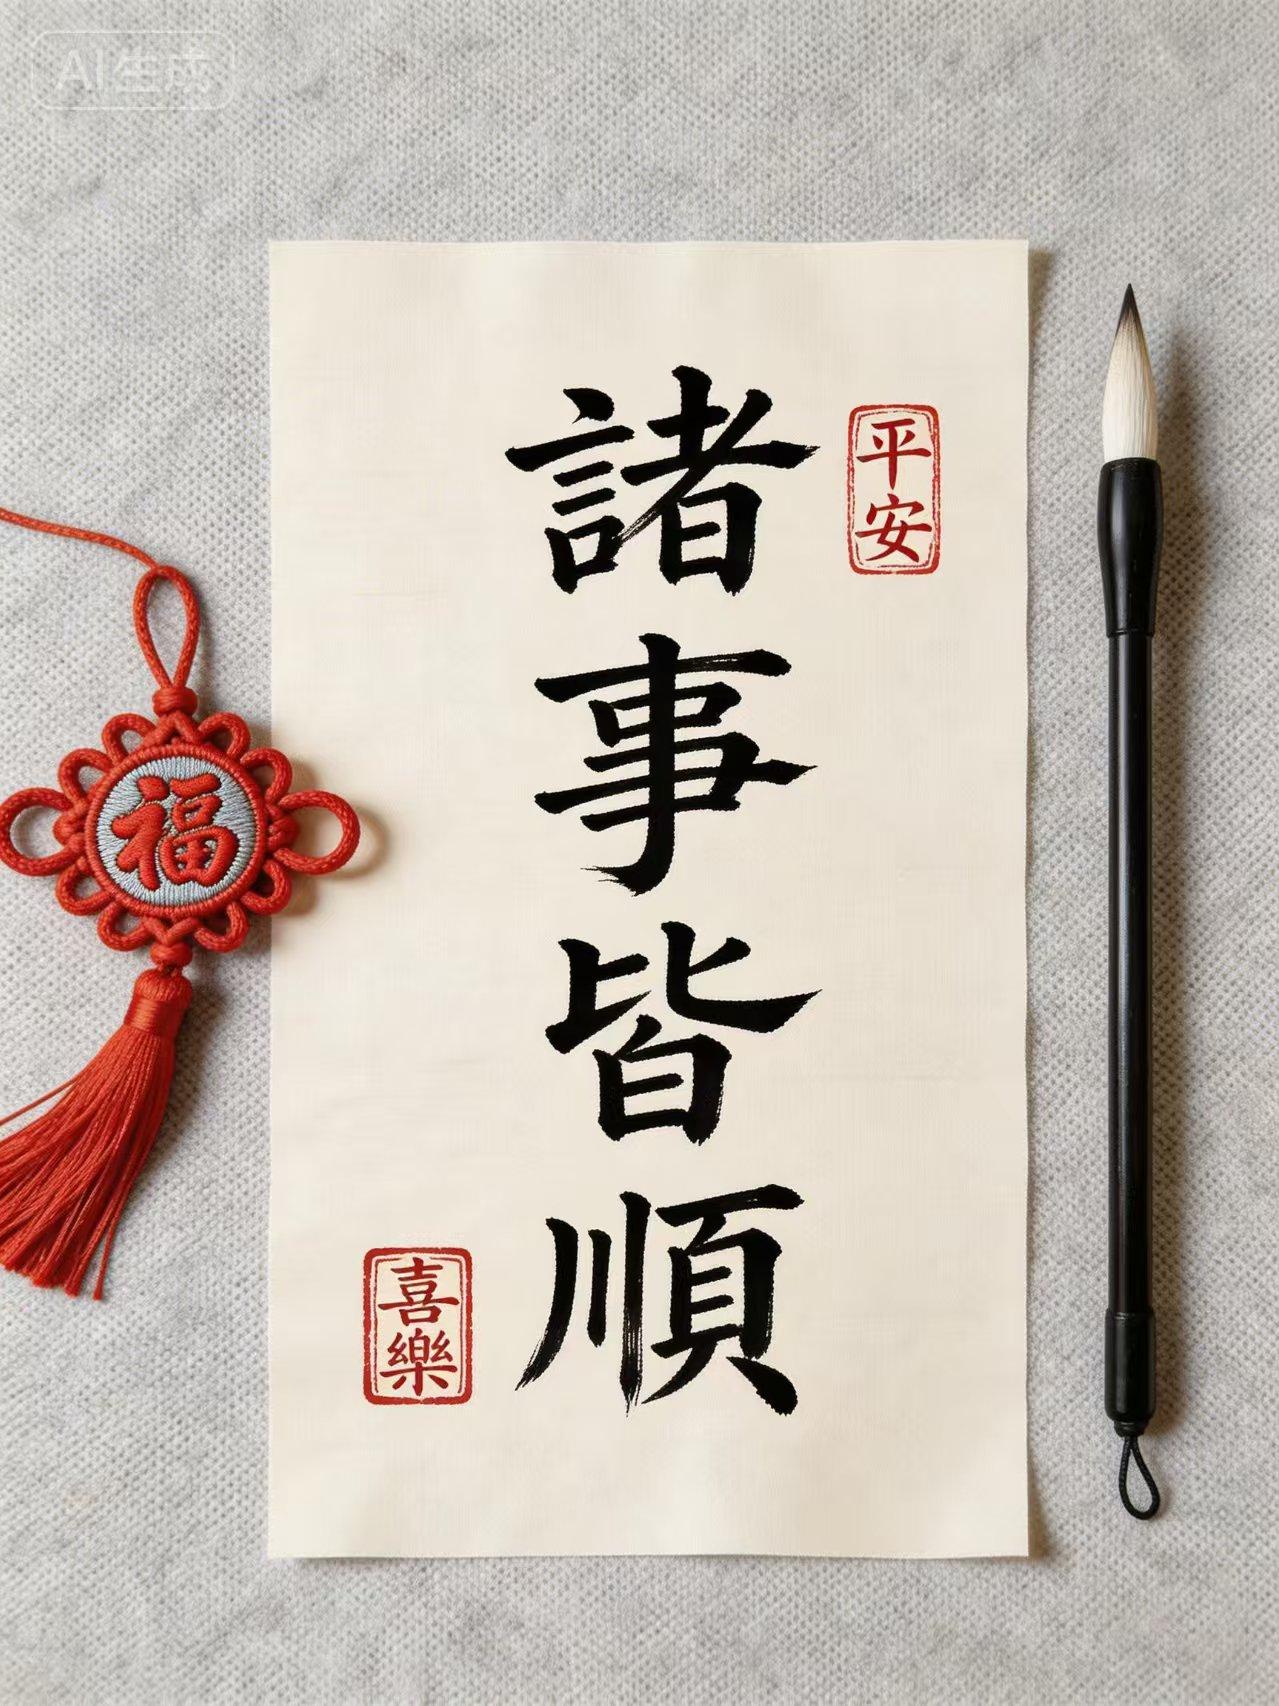 AI生成
諸事皆順
平安
福
喜樂